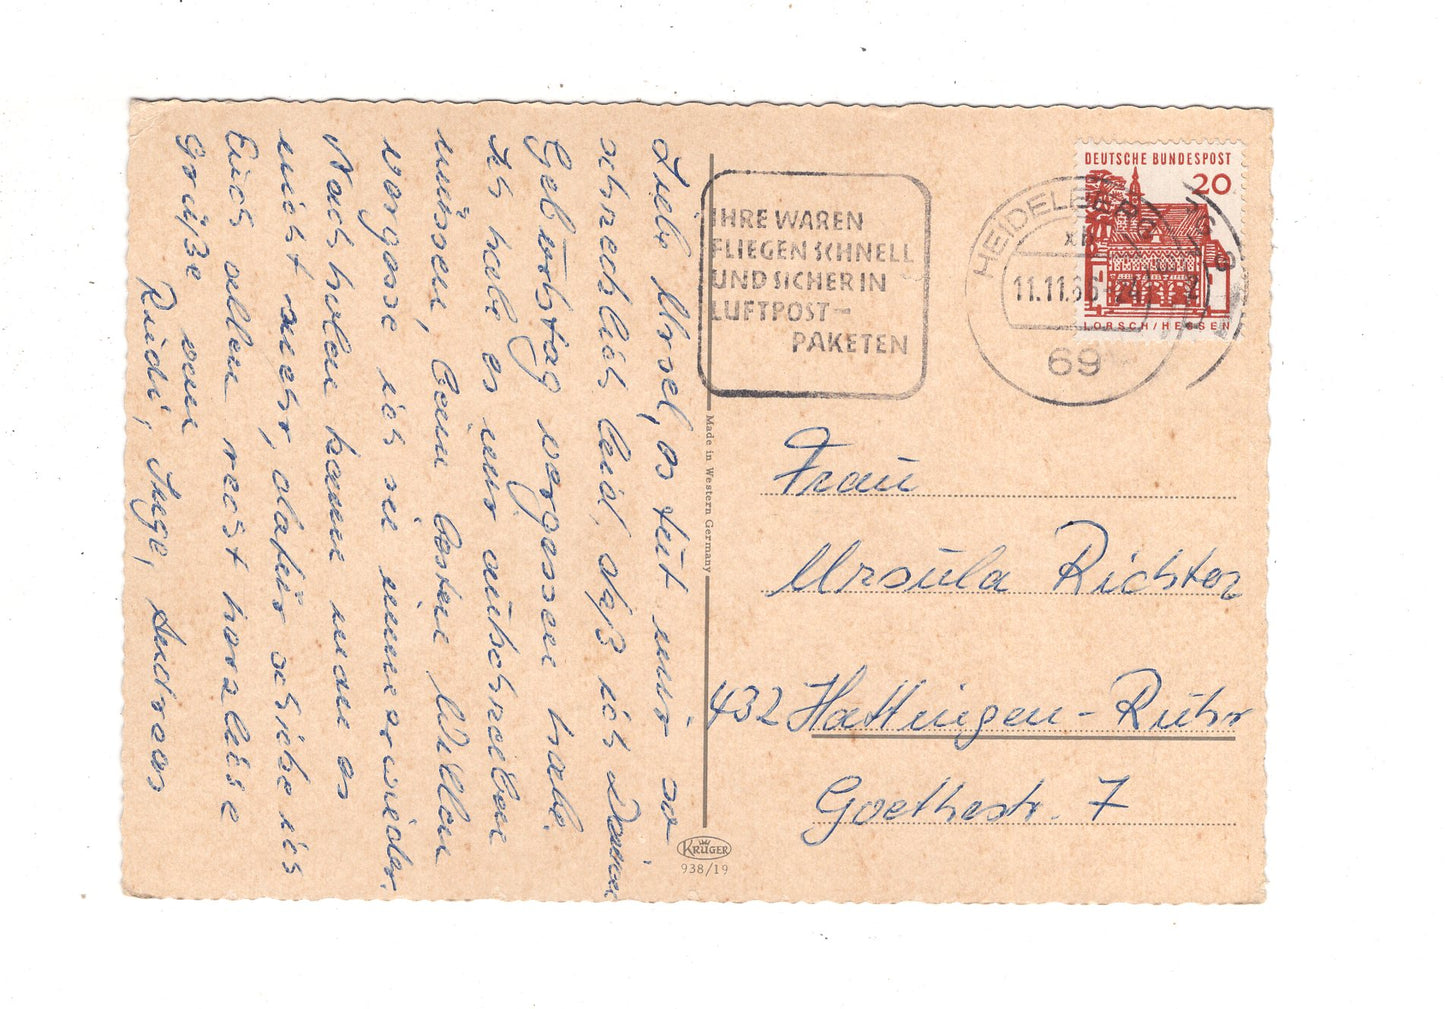 Liebe Ursel, es tut mir so
schrecklich leid, daß ich Deinen
Geburtstag vergessen habe.
Ich habe es mir aufschreiben
müssen, beim besten Willen
vergesse ich sie immer wieder.
Nachholen kann man es
nicht mehr, dafür schicke ich
Euch allen recht herzliche
Grüße von
Rudi, Inge, Andreas
Made in Western Germany
KRÜGER
938/19
IHRE WAREN
FLIEGEN SCHNELL
UND SICHER IN
LUFTPOST-
PAKETEN
HEIDELBERG
11.11.66
69
DEUTSCHE BUNDESPOST
20
LORSCH/HESSEN
Frau
Ursula Richter
432 Hattingen-Ruhr
Goethestr. 7